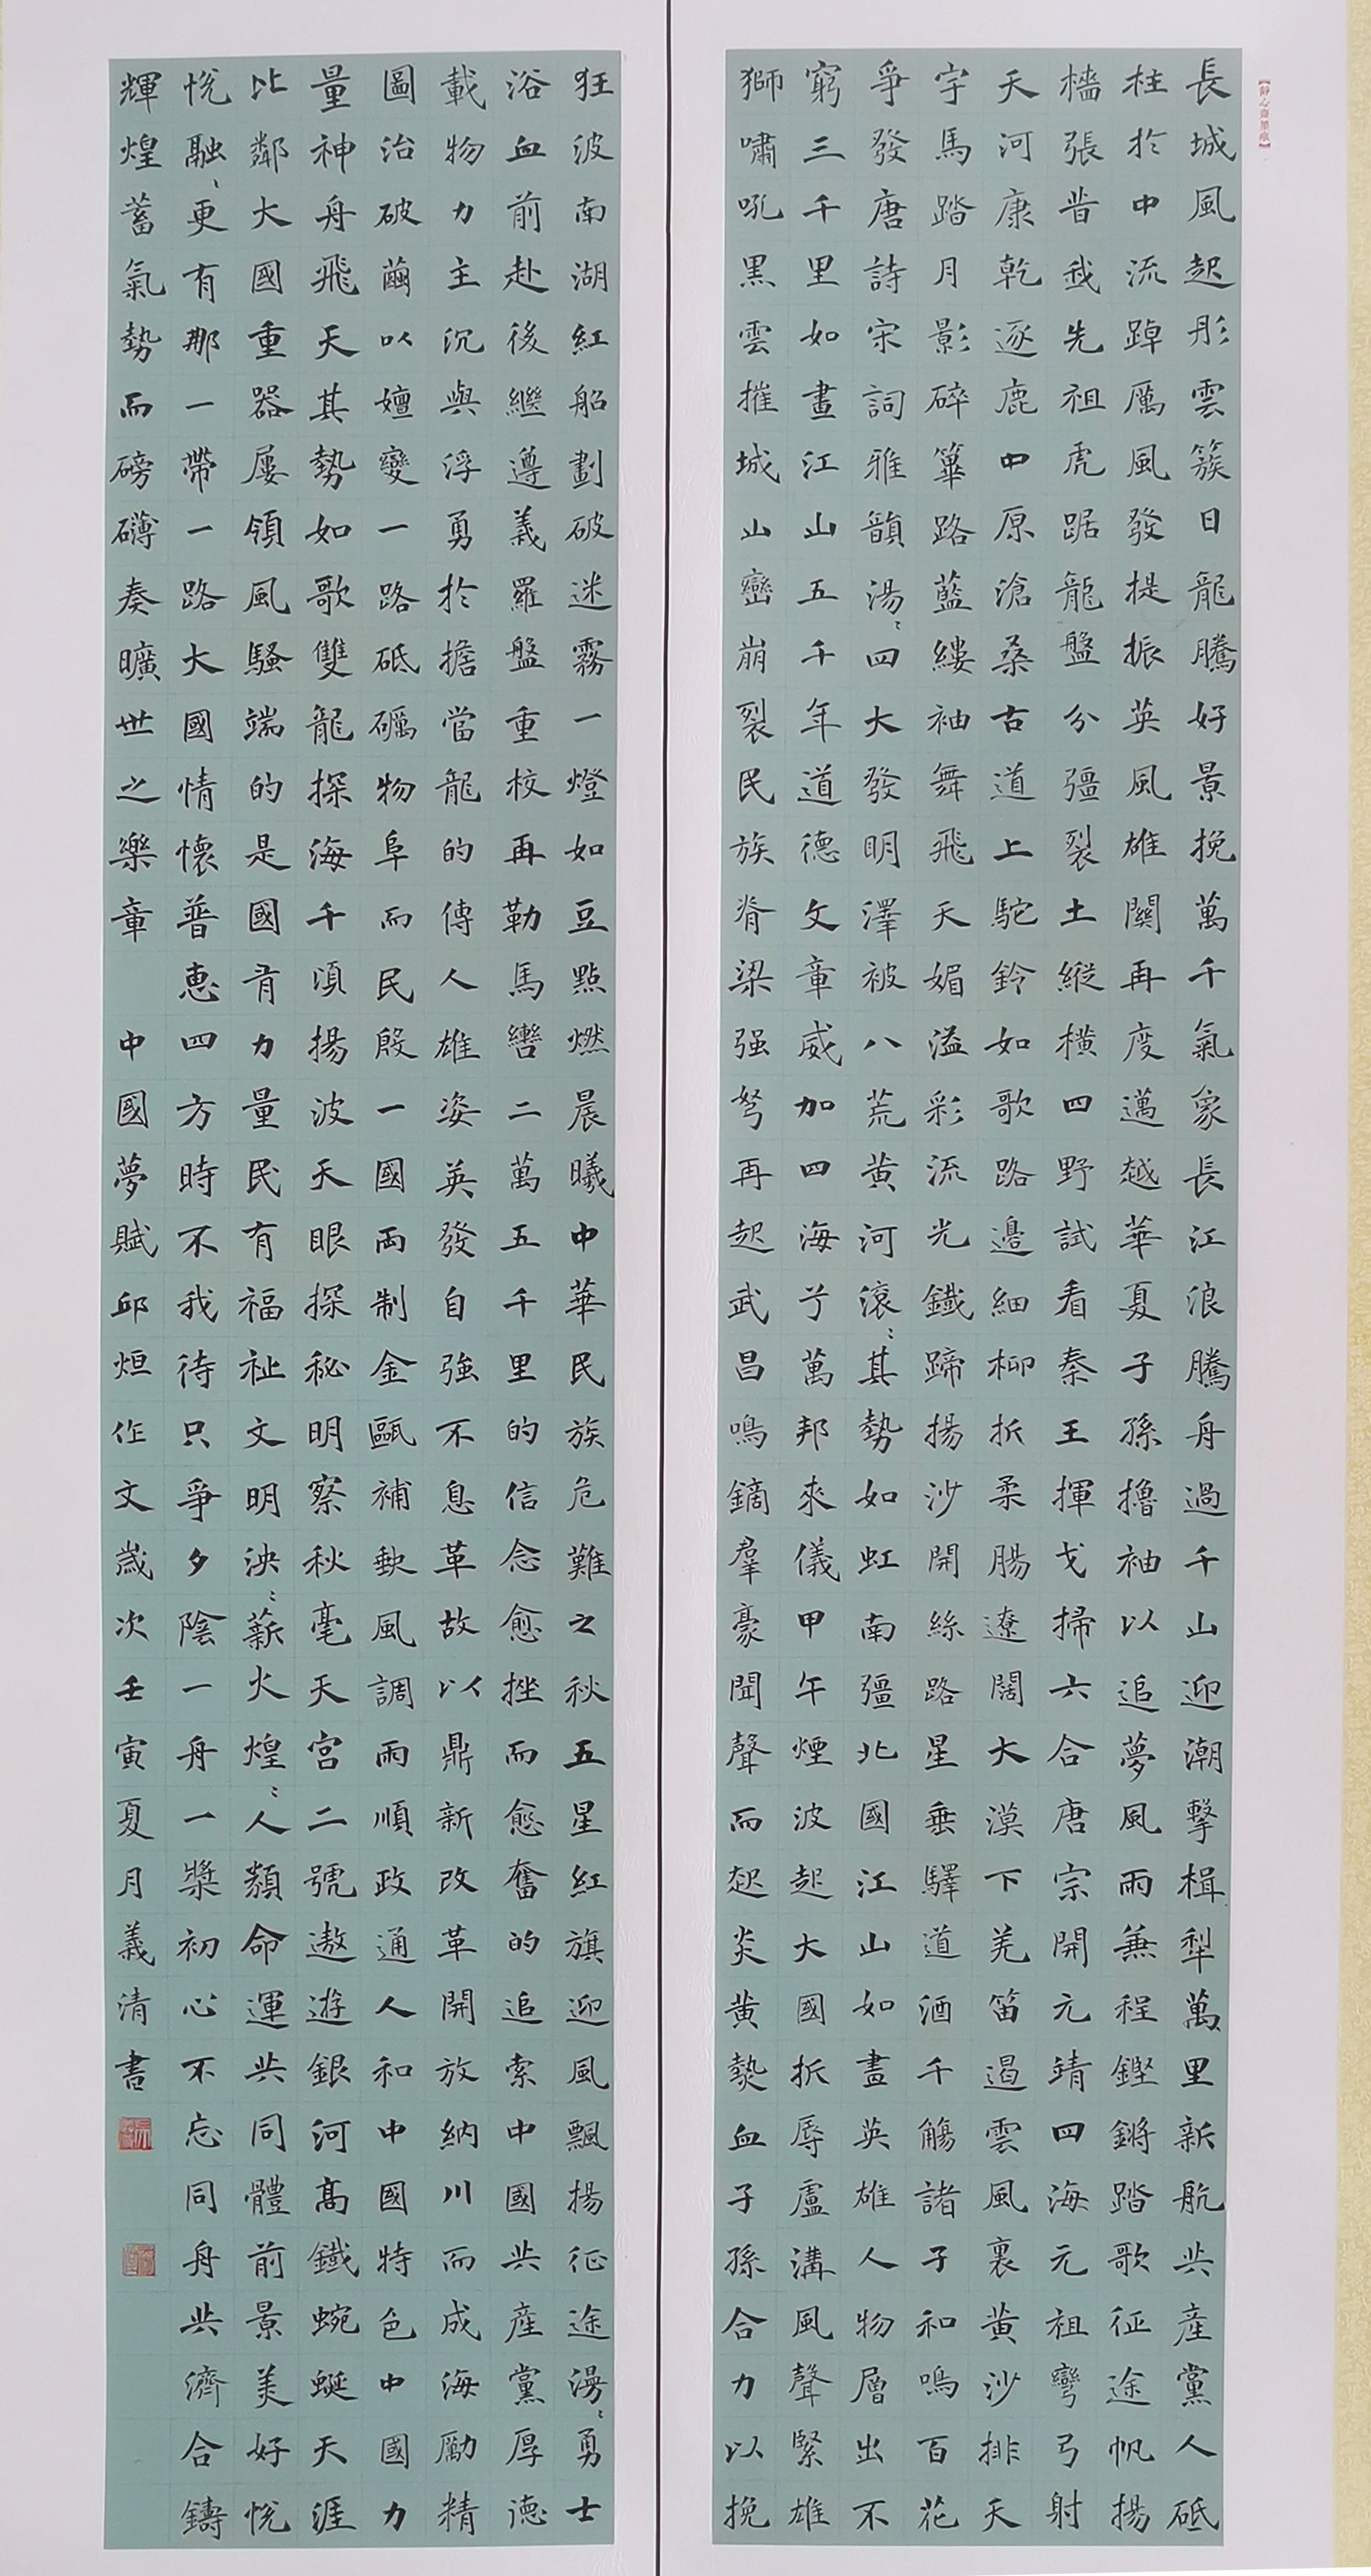 【靜心齋墨痕】
長城風起彤雲簇日龍騰好景挽萬千氣象長江浪騰舟過千山迎潮擊楫犁萬里新航共產黨人砥
柱於中流踔厲風發提振英風雄關再度邁越華夏子孫擼袖以追夢風雨兼程鏗鏘踏歌征途帆揚
檣張昔我先祖虎踞龍盤分疆裂土縱橫四野試看秦王揮戈掃六合唐宗開元靖四海元祖彎弓射
天河康乾逐鹿中原滄桑古道上駝鈴如歌路邊細柳折柔腸遼闊大漠下羌笛遏雲風裏黃沙排天
宇馬踏月影碎篳路藍縷袖舞飛天媚溢彩流光鐵蹄揚沙開絲路星垂驛道酒千觴諸子和鳴百花
爭發唐詩宋詞雅韻湯〻四大發明澤被八荒黃河滾〻其勢如虹南疆北國江山如畫英雄人物層出不
窮三千里如畫江山五千年道德文章威加四海兮萬邦來儀甲午煙波起大國折辱盧溝風聲緊雄
獅嘯吼黑雲摧城山巒崩裂民族脊梁强弩再起武昌鳴鏑羣豪聞聲而起炎黃熱血子孫合力以挽
狂波南湖紅船劃破迷霧一燈如豆點燃晨曦中華民族危難之秋五星紅旗迎風飄揚征途漫〻勇士
浴血前赴後繼遵義羅盤重校再勒馬轡二萬五千里的信念愈挫而愈奮的追索中國共產黨厚德
載物力主沉與浮勇於擔當龍的傳人雄姿英發自強不息革故以鼎新改革開放納川而成海勵精
圖治破繭以嬗變一路砥礪物阜而民殷一國兩制金甌補缺風調雨順政通人和中國特色中國力
量神舟飛天其勢如歌雙龍探海千頃揚波天眼探秘明察秋毫天宮二號遨遊銀河高鐵蜿蜒天涯
比鄰大國重器屢領風騷端的是國有力量民有福祉文明泱〻薪火煌〻人類命運共同體前景美好悅
悅融〻更有那一帶一路大國情懷普惠四方時不我待只爭夕陰一舟一槳初心不忘同舟共濟合鑄
輝煌蓄氣勢而磅礴奏曠世之樂章 中國夢賦邱烜作文歲次壬寅夏月義清書